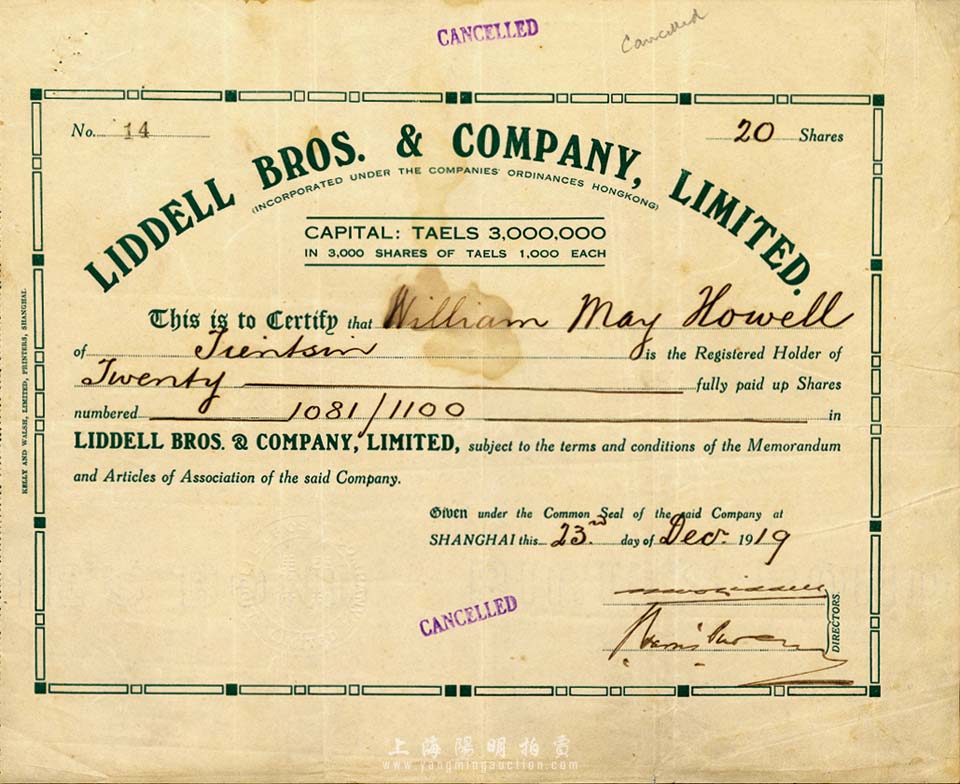 CANCELLED
Cancelled
No. 14
20 Shares
LIDDELL BROS. & COMPANY, LIMITED.
(INCORPORATED UNDER THE COMPANIES' ORDINANCES HONGKONG)
CAPITAL: TAELS 3,000,000
IN 3,000 SHARES OF TAELS 1,000 EACH
This is to Certify that William May Howell
of Tientsin is the Registered Holder of
Twenty fully paid up Shares
numbered 1081/1100 in
LIDDELL BROS. & COMPANY, LIMITED, subject to the terms and conditions of the Memorandum
and Articles of Association of the said Company.
Given under the Common Seal of the said Company at
SHANGHAI this 23rd day of Decr. 1919
CANCELLED
DIRECTORS.
KELLY AND WALSH, LIMITED, PRINTERS, SHANGHAI.
上海陽明拍賣
www.yangmingauction.com